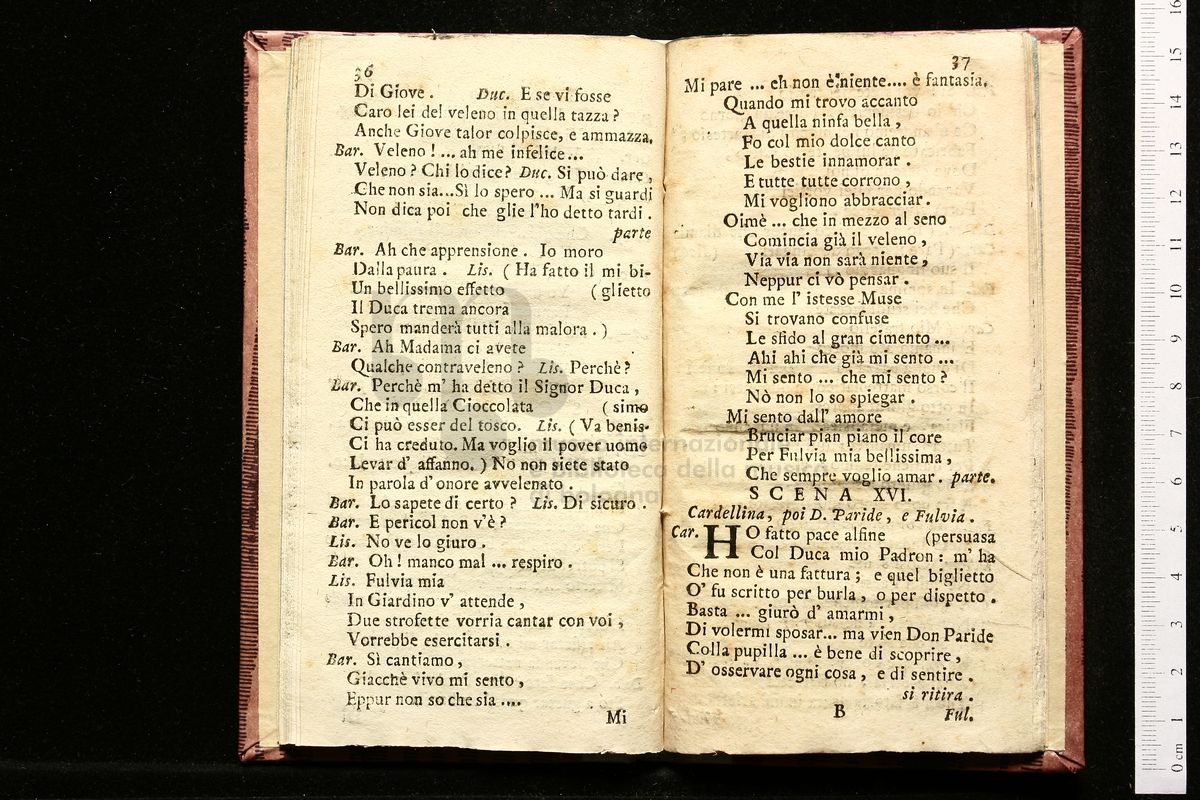 36
Di Giove . Duc. E se vi fosse
Caro lei del veleno in quella tazza ?
Anche Giove talor colpisce, e ammazza.
Bar. Veleno ! ... ah me infelice ...
Veleno ? Chi lo dice ? Duc. Si può dare ,
Che non sia...Sì lo spero ... Ma si guardi
Non dica poi che glie l'ho detto tardi .
parte
Bar. Ah che apprensione . Io moro
Dalla paura . Lis. ( Ha fatto il mi bi-
Un bellissimo effetto ( glietto
Il Duca trema ancora
Spero manderà tutti alla malora . )
Bar. Ah Madama ci avete
Qualche contraveleno ? Lis. Perchè ?
Bar. Perchè m' ha detto il Signor Duca ,
Che in quella Cioccolata ( simo
Ci può esser del tosco. Lis. ( Va benis-
Ci ha creduto. Ma voglio il pover uomo
Levar d' affanno. ) No non siete stato
In parola d' onore avvelenato .
Bar. Lo sapete di certo ? Lis. Di sicuro .
Bar. E pericol non v'è ?
Lis. No ve lo giuro .
Bar. Oh ! manco mal ... respiro .
Lis. Fulvia mia
In Giardino v' attende ,
Due strofette vorria cantar con voi ,
Vorrebbe esercitarsi .
Bar. Sì cantiamo ,
Giacchè vivo mi sento ,
Eppur non so che sia ....
Mi
37
Mi pare ... eh non è niente .... è fantasia.
Quando mi trovo accanto
A quella ninfa bella ,
Fo col mio dolce canto
Le bestie innamorar .
E tutte tutte corrono ,
Mi vogliono abbracciar .
Oimè ... che in mezzo al seno
Comincia già il veleno ,
Via via non sarà niente ,
Neppur ci vò pensar .
Con me l' istesse Muse
Si trovano confuse
Le sfido al gran cimento ...
Ahi ahi che già mi sento ...
Mi sento ... che mi sento ?
Nò non lo so spiegar .
Mi sento dall' amore
Bruciar pian piano il core
Per Fulvia mia bellissima ,
Che sempre voglio amar . parte.
SCENA XVI.
Cardellina, poi D. Paride, e Fulvia .
Car. HO fatto pace alfine (persuasa
Col Duca mio Padron : m' ha
Che non è una fattura ; e quel biglietto
O' fu scritto per burla , o per dispetto .
Basta ... giurò d' amarmi ,
Di volermi sposar... ma vien Don Paride
Colla pupilla ... è bene di scoprire ,
D' osservare ogni cosa , e di sentire .
si ritira .
B Ful.
0 cm 1 2 3 4 5 6 7 8 9 10 11 12 13 14 15 16